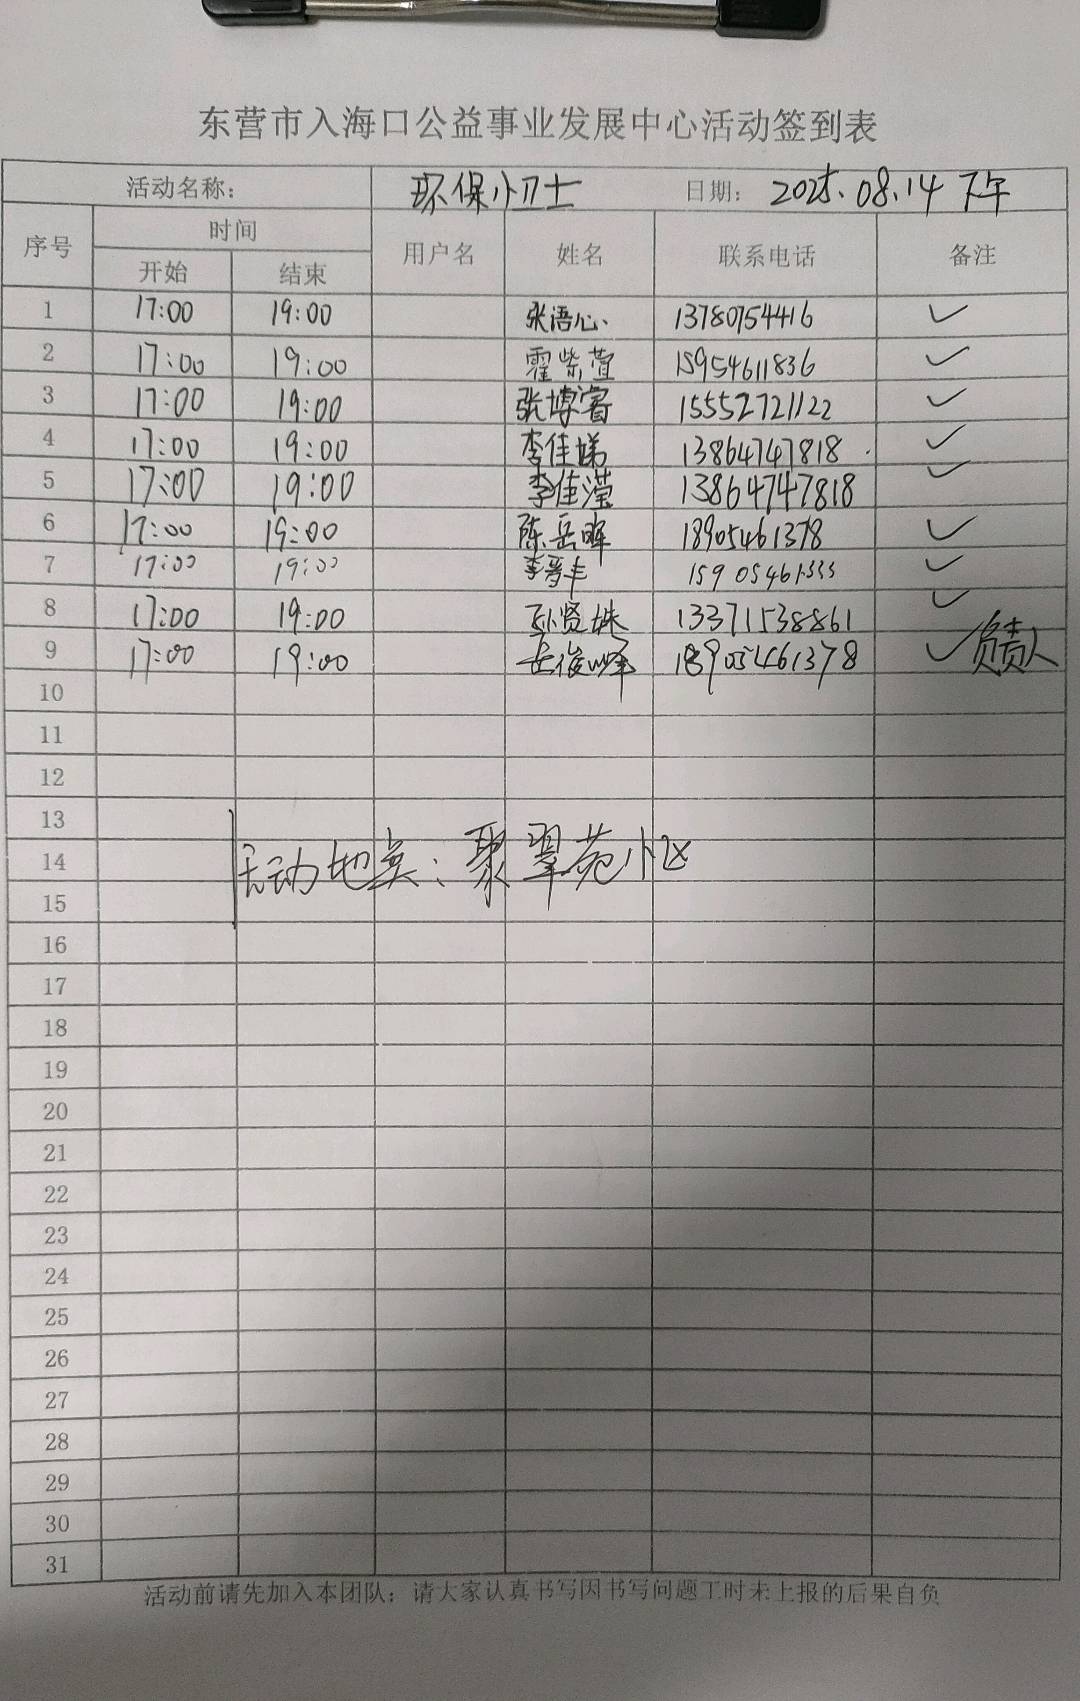 东营市入海口公益事业发展中心活动签到表
活动名称： 环保小卫士 日期： 2025.08.14 下午
序号 时间 用户名 姓名 联系电话 备注
开始 结束
1 17:00 19:00 张语心 13780754416 ✓
2 17:00 19:00 霍紫萱 15954611836 ✓
3 17:00 19:00 张博睿 15552721122 ✓
4 17:00 19:00 李佳娣 13864747818 ✓
5 17:00 19:00 李佳滢 13864747818 ✓
6 17:00 19:00 陈岳晖 18905461378 ✓
7 17:00 19:00 15905461333 ✓
8 17:00 19:00 孙贤姝 13371538861 ✓
9 17:00 19:00 岳俊峰 18905461378 ✓负责人
10
11
12
13
14 活动地点：聚翠苑小区
15
16
17
18
19
20
21
22
23
24
25
26
27
28
29
30
31
活动前请先加入本团队；请大家认真书写因书写问题工时未上报的后果自负